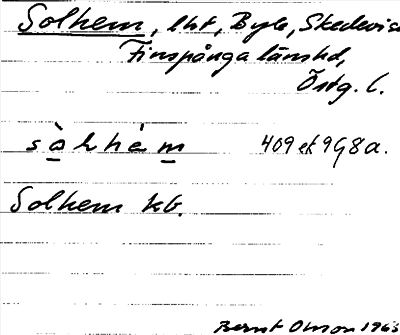 Solhem, lht, Byle, Skedevi s:n
Finspånga länshd,
Östg. l.
sò̲lhèm̲ 409 ek 9G8a.
Solhem kb.
Bernt Olsson 1965